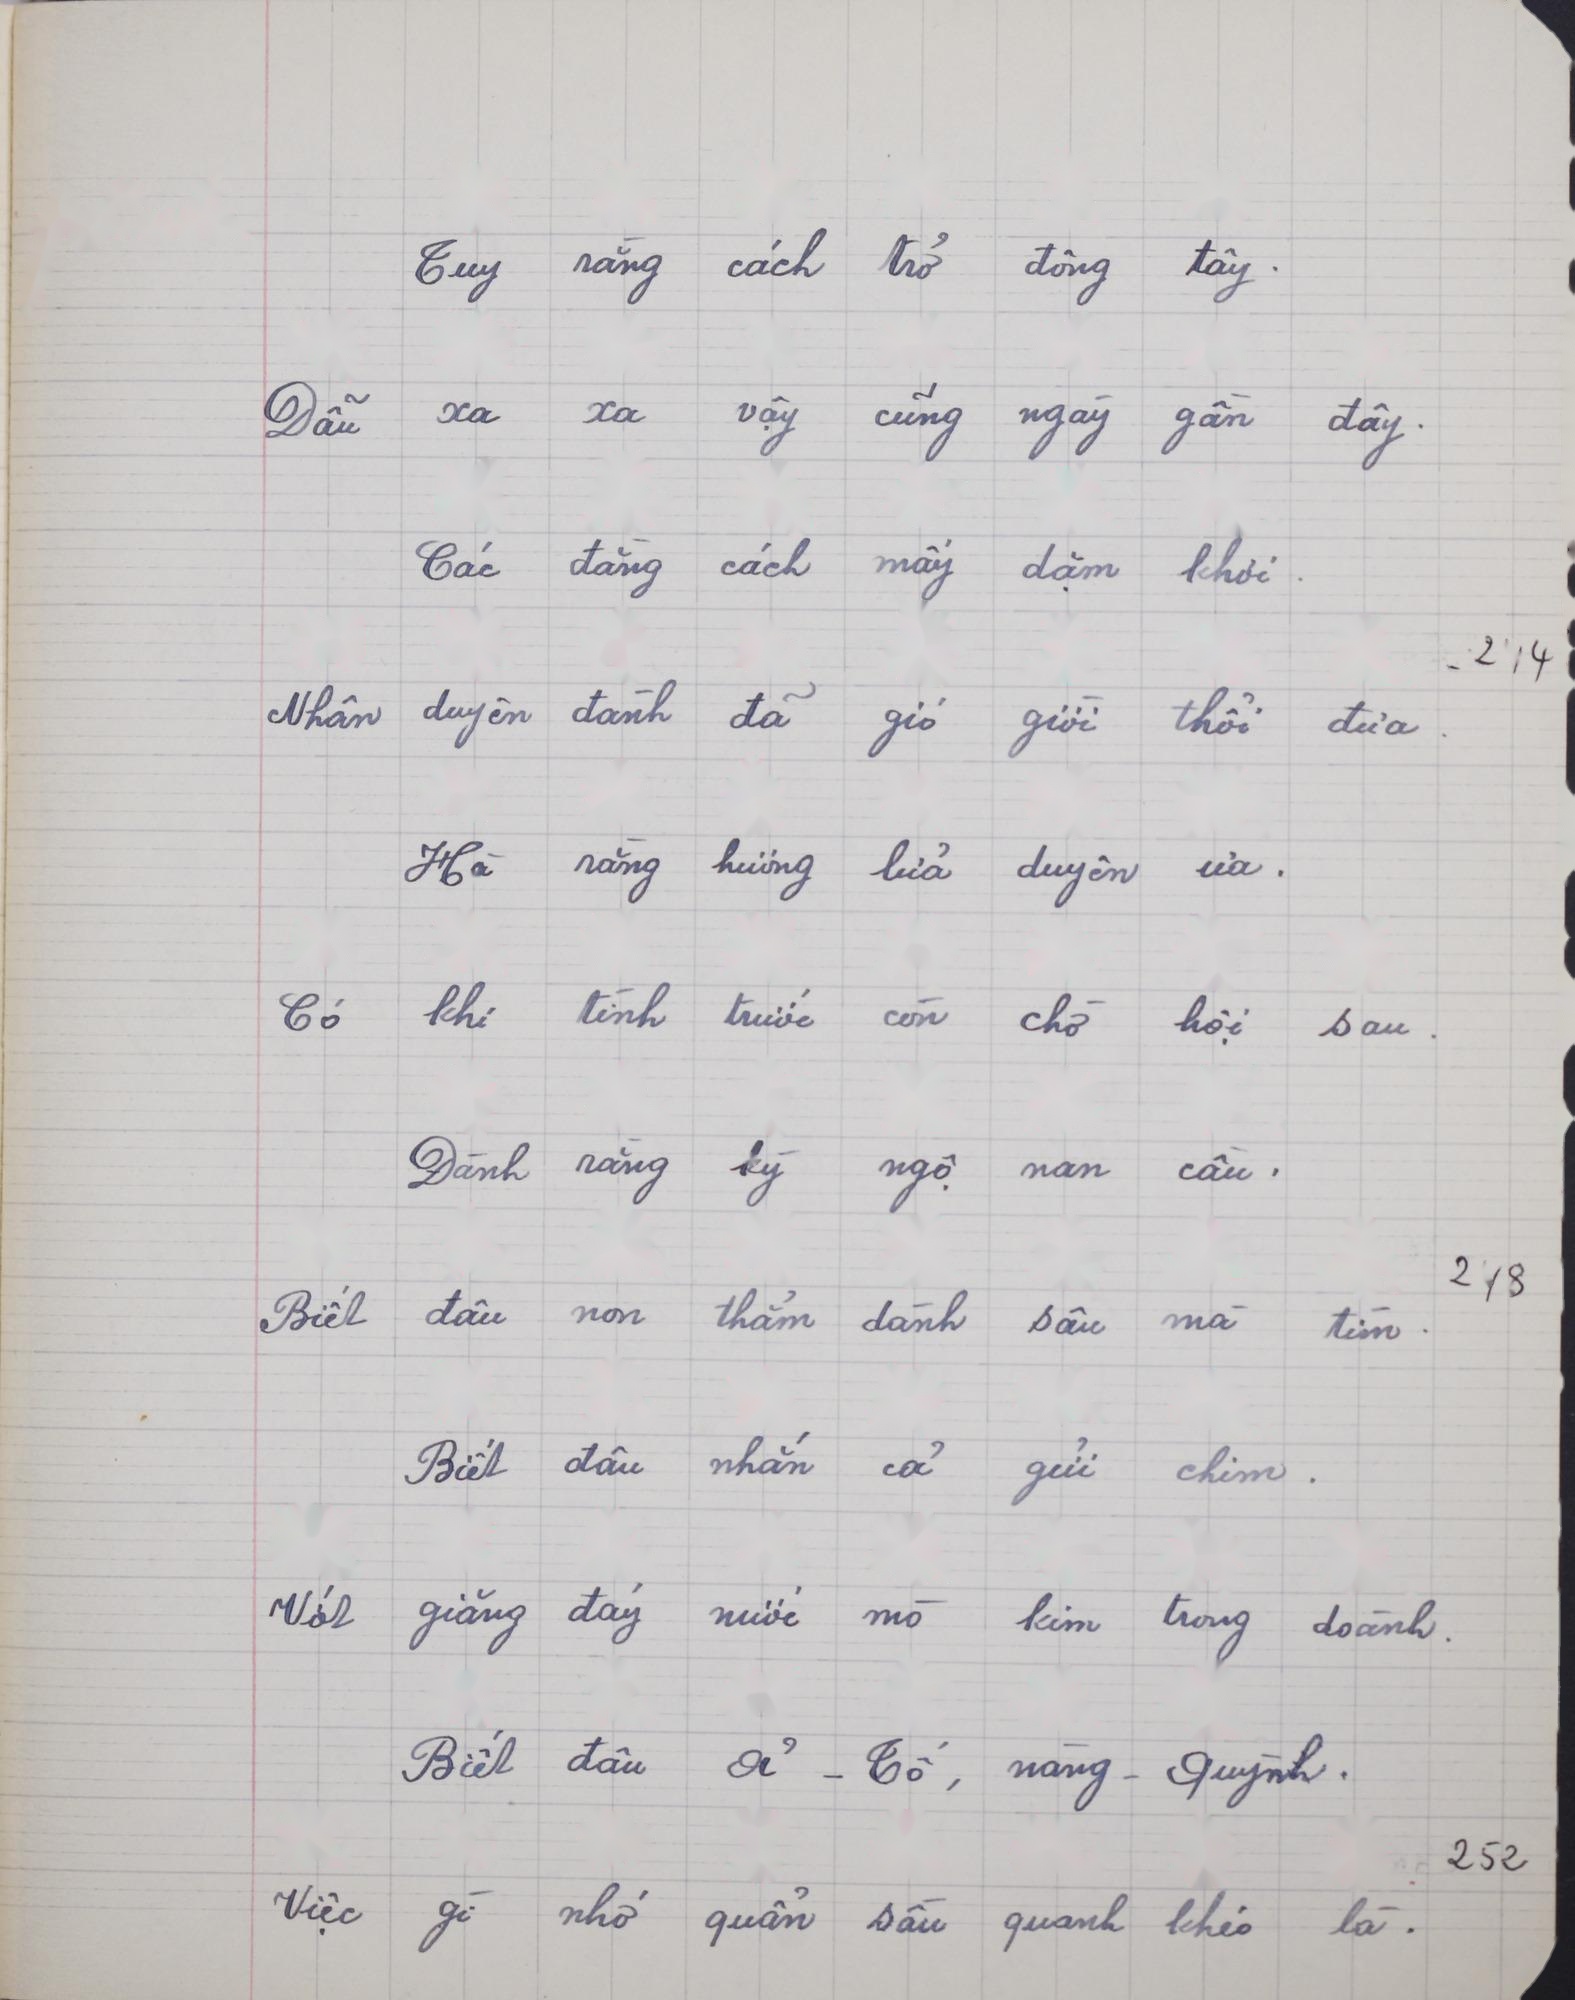 Tuy rằng cách trở đông tây.
Dẫu xa xa vậy cũng ngay gần đây.
Các đằng cách mấy dặm khơi.
214
Nhân duyên đành đã gió giời thổi đưa.
Hà rằng hương lửa duyên ưa.
Có khi tình trước còn chờ hội sau.
Đành rằng kỳ ngộ nan cầu.
218
Biết đâu non thẳm dành sâu mà tìm.
Biết đâu nhắn cá gửi chim.
Vớt giăng đáy nước mò kim trong doành.
Biết đâu ả - Tố, nàng - Quỳnh.
252
Việc gì nhớ quẩn sầu quanh khéo là.